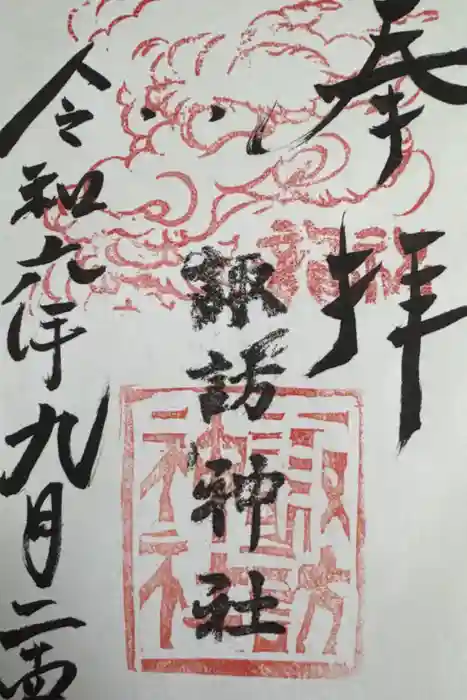 奉拝
諏訪神社
諏訪
神社
令和六年九月二